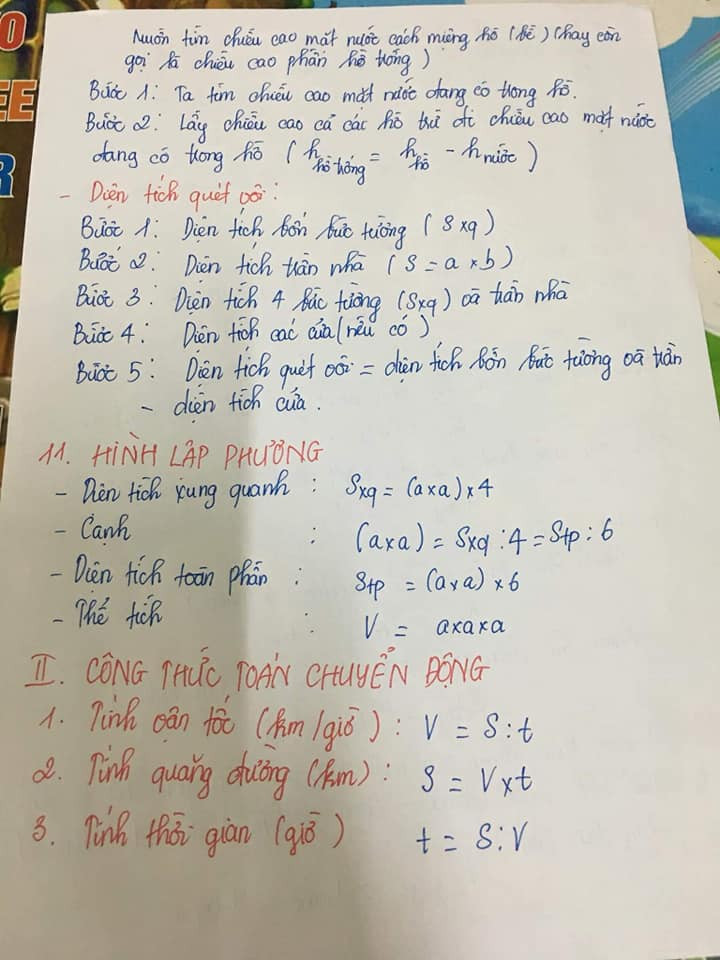 O
EE
R
Muốn tìm chiều cao mặt nước cách miệng hồ (bể) (hay còn
gọi là chiều cao phần hồ trống)
Bước 1: Ta tìm chiều cao mặt nước đang có trong hồ.
Bước 2: Lấy chiều cao cả các hồ trừ đi chiều cao mặt nước
đang có trong hồ (h hồ trống = h hồ - h nước)
- Diện tích quét vôi:
Bước 1: Diện tích bốn bức tường (Sxq)
Bước 2: Diện tích trần nhà (S = a x b)
Bước 3: Diện tích 4 bức tường (Sxq) và trần nhà
Bước 4: Diện tích các cửa (nếu có)
Bước 5: Diện tích quét vôi = diện tích bốn bức tường và trần
- diện tích cửa.
11. HÌNH LẬP PHƯƠNG
- Diện tích xung quanh : Sxq = (a x a) x 4
- Cạnh : (a x a) = Sxq : 4 = Stp : 6
- Diện tích toàn phần : Stp = (a x a) x 6
- Thể tích : V = a x a x a
II. CÔNG THỨC TOÁN CHUYỂN ĐỘNG
1. Tính vận tốc (km/giờ) : V = S : t
2. Tính quãng đường (km) : S = V x t
3. Tính thời gian (giờ) t = S : V